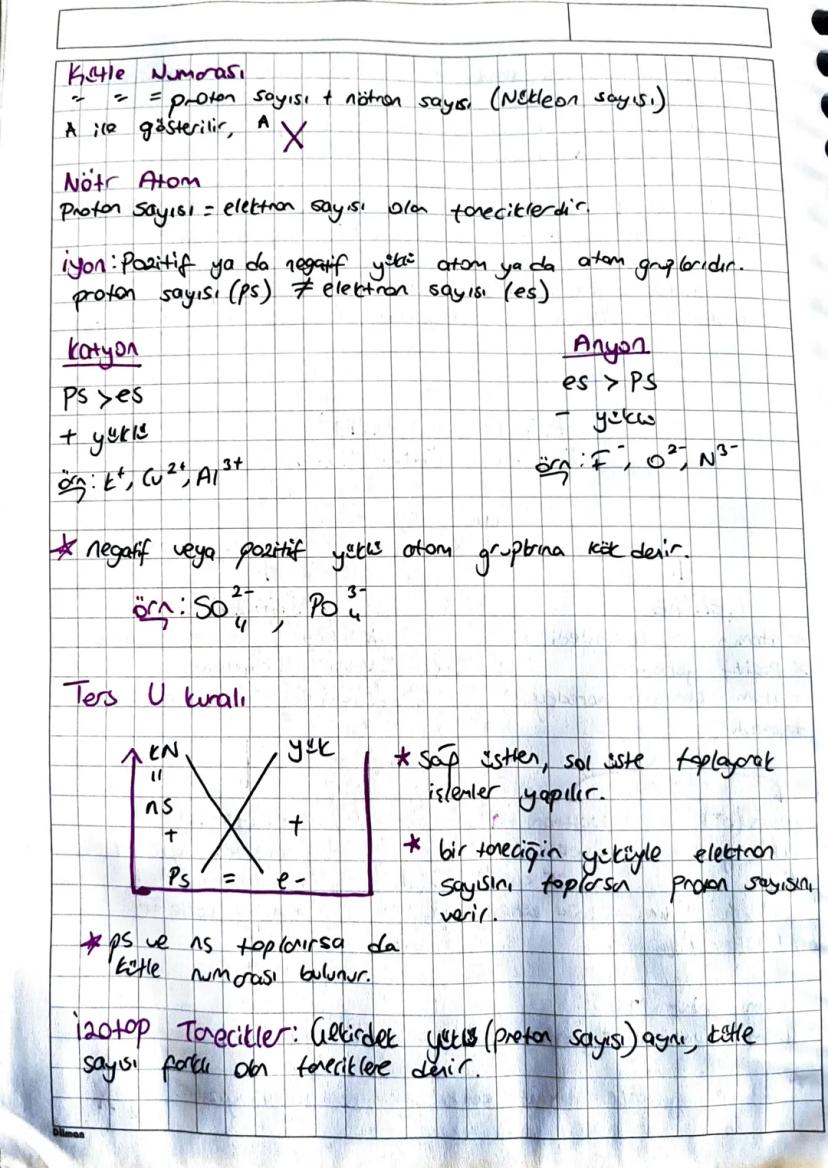 Kütle Numarası
" " = proton sayısı + nötron sayısı (Nükleon sayısı)
A ile gösterilir, ᴬX
Nötr Atom
Proton sayısı = elektron sayısı olan taneciklerdir.
iyon: Pozitif ya da negatif yüklü atom ya da atom gruplarıdır.
proton sayısı (ps) ≠ elektron sayısı (es)
Katyon Anyon
Ps > es es > Ps
+ yüklü - yüklü
örn: K⁺, Cu²⁺, Al³⁺ örn: F⁻, O²⁻, N³⁻
* negatif veya pozitif yüklü atom gruplarına kök denir.
örn: SO₄²⁻, PO₄³⁻
Ters U kuralı
KN yük
=
ns
+ +
Ps = e-
* sağ üstten, sol üste toplayarak
işlemler yapılır.
* bir taneciğin yüküyle elektron
sayısını toplarsan proton sayısını
verir.
* ps ve ns toplanırsa da
kütle numarası bulunur.
izotop Tanecikler: Çekirdek yükü (proton sayısı) aynı, kütle
sayısı farklı olan taneciklere denir.
Dilman